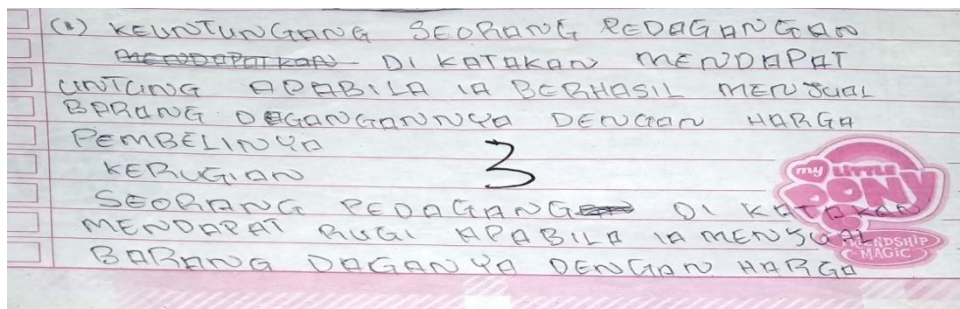 (2) KEUNTUNGANG SEORANG PEDAGANGAN
MENDAPATKAN DI KATAKAN MENDAPAT
UNTUNG APABILA IA BERHASIL MENJUAL
BARANG DAGANGANNYA DENGAN HARGA
PEMBELINYA
3
KERUGIAN
SEORANG PEDAGANG DI KATAKAN
MENDAPAT RUGI APABILA IA MENJUAL
BARANG DAGANYA DENGAN HARGA
my LITTLE
PONY
FRIENDSHIP
MAGIC